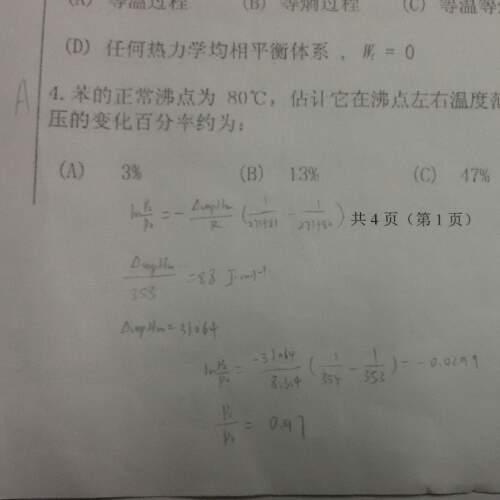 (A) 等温过程 (B) 等焓过程 (C) 等温等
(D) 任何热力学均相平衡体系 , W_f = 0
A
4. 苯的正常沸点为 80℃, 估计它在沸点左右温度范
压的变化百分率约为:
(A) 3% (B) 13% (C) 47%
ln P₂/P₁ = - ΔvapHm/R (1/273+81 - 1/273+80)
共 4 页（第 1 页）
ΔvapHm/353 = 88 J·mol⁻¹
ΔvapHm = 31064
ln P₂/P₁ = -31064/8.314 (1/354 - 1/353) = -0.0299
= 0.97